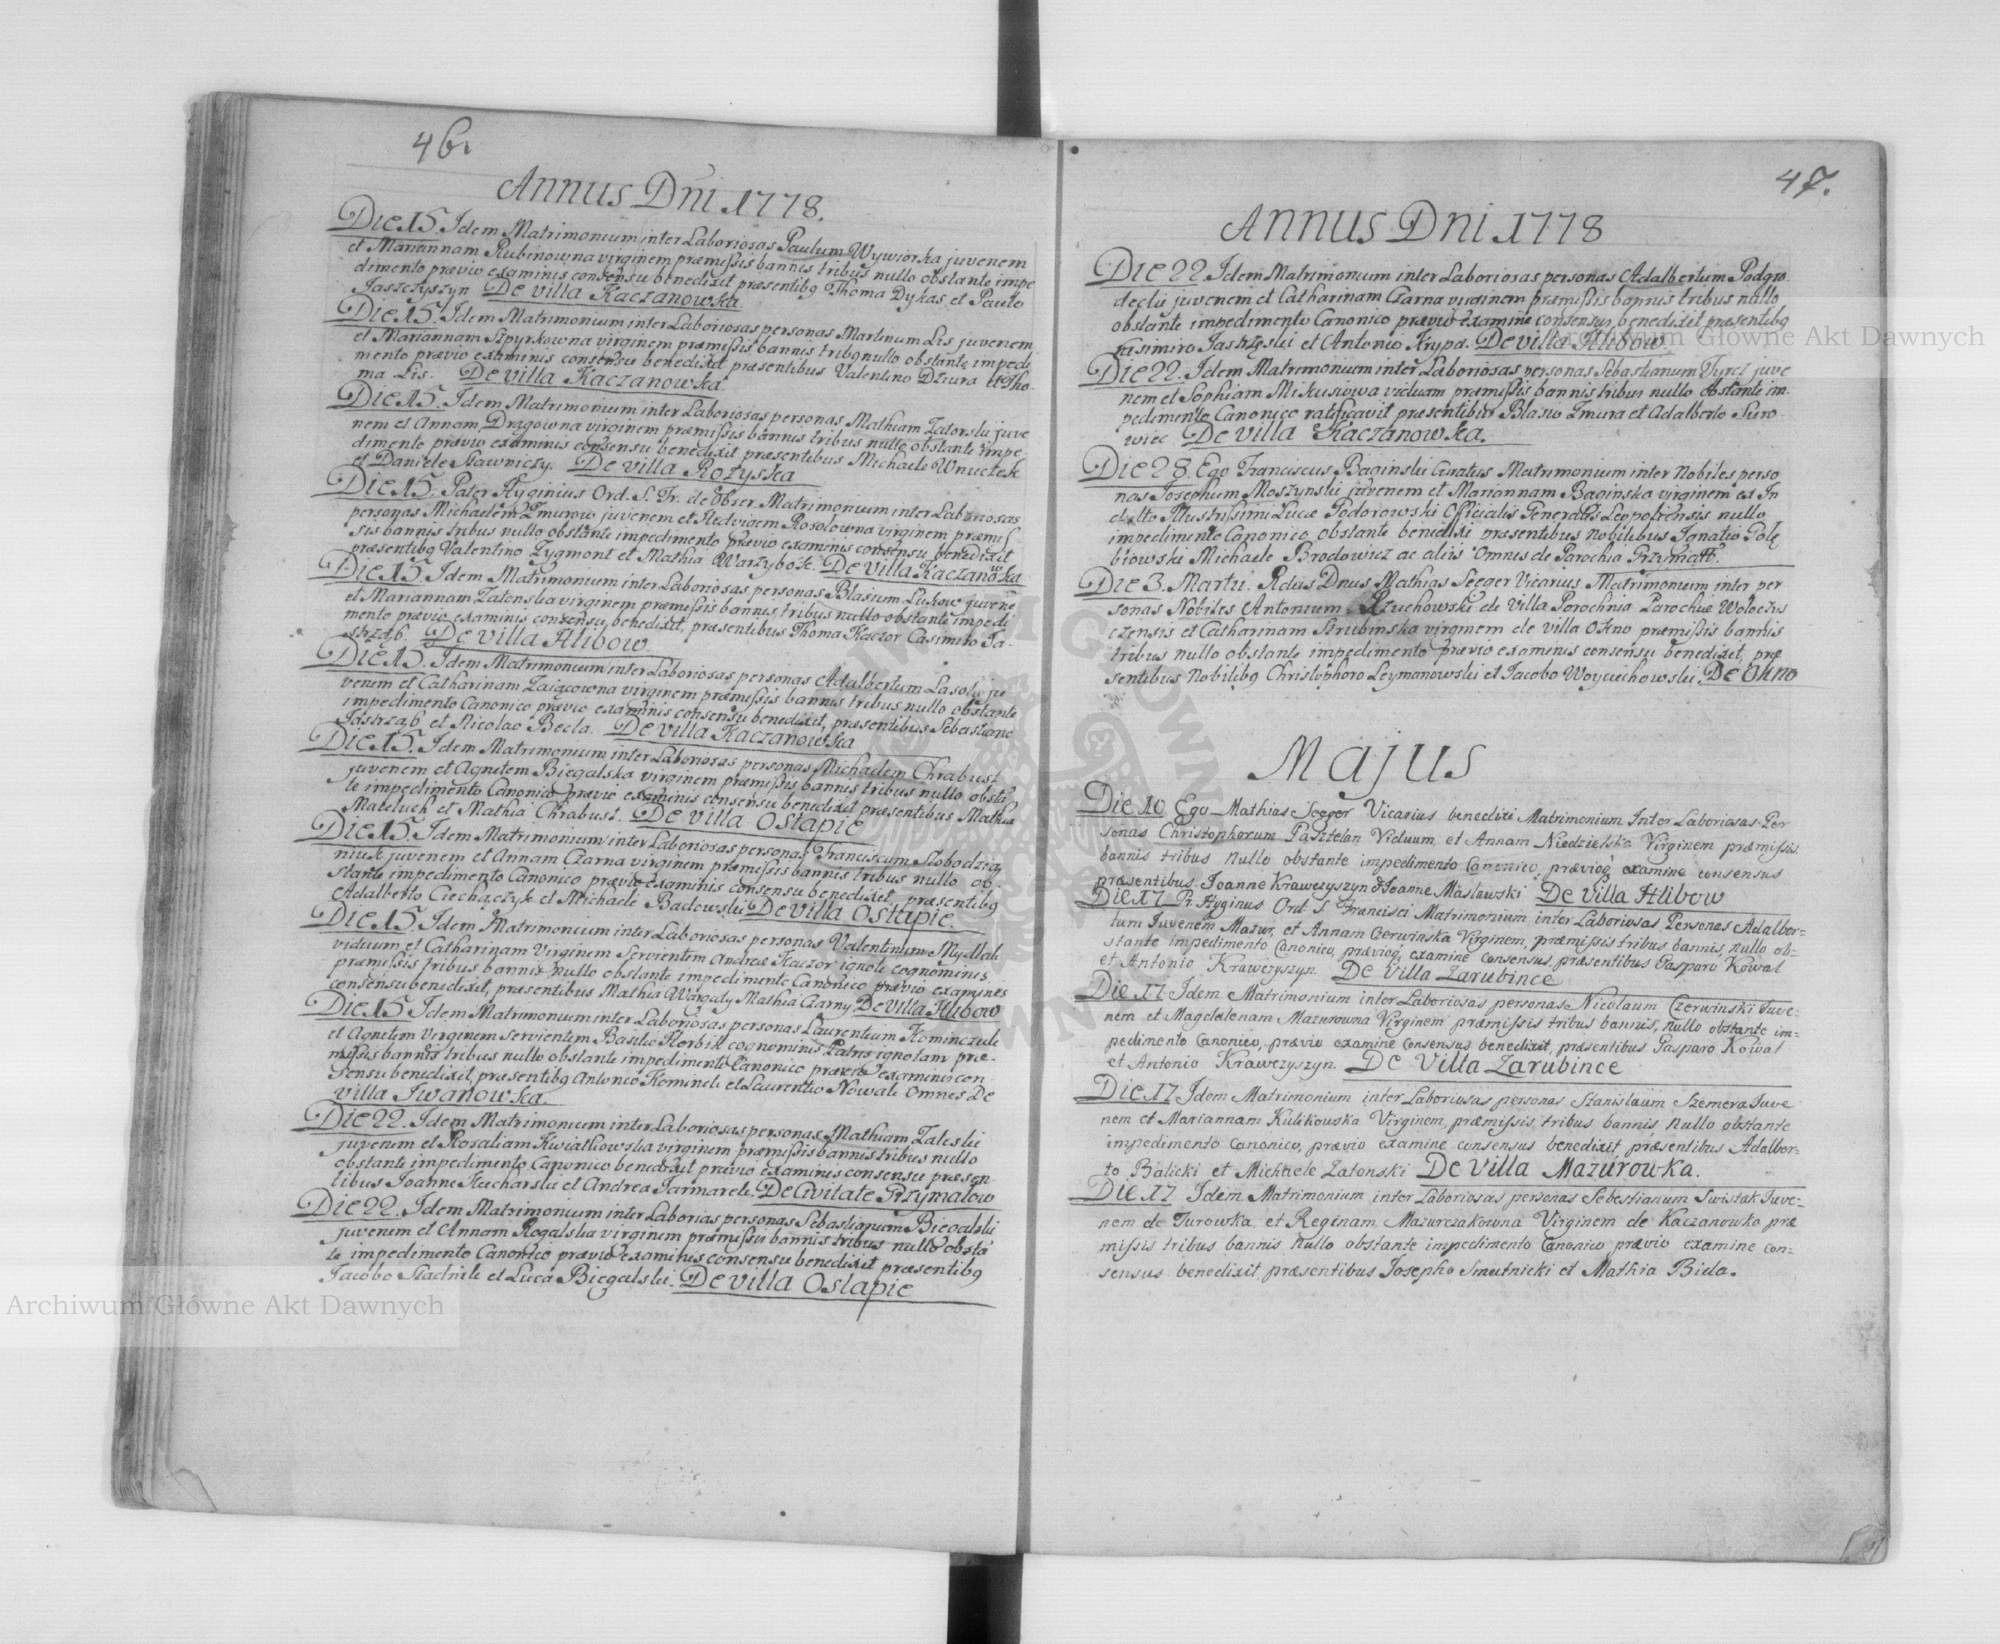 46.
Annus Dni 1778.
Die 15. Idem Matrimonium inter Laboriosas Paulum Wywiorka juvenem
et Mariannam Rubinowna virginem præmissis bannis tribus nullo obstante impe
dimento prævio examinis consensu benedixit præsentibg Thoma Dykas et Paulo
Jaszczyszyn De villa Kaczanowka.
Die 15. Idem Matrimonium inter Laboriosas personas Martinum Lis juvenem
et Mariannam Szpyrkowna virginem præmissis bannis tribg nullo obstante impedi
mento prævio examinis consensu benedixit præsentibus Valentino Dziura et Tho-
ma Lis. De villa Kaczanowka.
Die 15. Idem Matrimonium inter Laboriosas personas Mathiam Zatorski juve
nem et Annam Dragowna virginem præmissis bannis tribus nullo obstante impe
dimento prævio examinis consensu benedixit præsentibus Michaele Wnuczek
et Daniele Stawniczy. De villa Rozyska
Die 15. Pater Hyginius Ord. S. Fr. de Obser. Matrimonium inter Laboriosas
personas Michaelem Zmurow juvenem et Hedvigem Rosolowna virginem præmis
sis bannis tribus nullo obstante impedimento prævio examinis consensu benedixit
præsentibg Valentino Zygmont et Mathia Warzybok. De villa Kaczanowka
Die 15. Idem Matrimonium inter Laboriosas personas Blasium Lukow juvene
et Mariannam Zatenska virginem præmissis bannis tribus nullo obstante impedi
mento prævio examinis consensu benedixit, præsentibus Thoma Kaczor Casimiro Ja-
strząb. De villa Hlibow
Die 15. Idem Matrimonium inter Laboriosas personas Adalbertum Lasota ju
venem et Catharinam Zaiącowna virginem præmissis bannis tribus nullo obstante
impedimento Canonico prævio examinis consensu benedixit, præsentibus Sebastiano
Jastrząb et Nicolao Becla. De villa Kaczanowka
Die 15. Idem Matrimonium inter Laboriosas personas Michaelem Chrabust
juvenem et Agnetem Biegalska virginem præmissis bannis tribus nullo obsta
te impedimento Canonico prævio examinis consensu benedixit præsentibus Mathia
Mateluch et Mathia Chrabust. De villa Ostapie
Die 15. Idem Matrimonium inter Laboriosas personas Franciscum Slobodzia
niuk juvenem et Annam Czarna virginem præmissis bannis tribus nullo ob-
stante impedimento Canonico prævio examinis consensu benedixit, præsentibg
Adalberto Ciechaczyk et Michaele Badowski De villa Ostapie.
Die 15. Idem Matrimonium inter Laboriosas personas Valentinum Mydlak
viduum et Catharinam Virginem Servientem Andreæ Kaczor ignoti cognominis
præmissis tribus bannis nullo obstante impedimento Canonico prævio examines
consensu benedixit, præsentibus Mathia Wargaty Mathia Czarny De villa Hlibow
Die 15 Idem Matrimonium inter Laboriosas personas Laurentium Kominczuk
et Agnetem Virginem Servientem Basilio Horbik cognominis Patris ignotam præ-
missis bannis tribus nullo obstante impedimento Canonico prævio examinis con
sensu benedixit, præsentibg Antonio Kominek et Laurentio Nowak Omnes De
villa Iwanowka.
Die 22. Idem Matrimonium inter Laboriosas personas Mathiam Zaleski
juvenem et Rosaliam Kwiatkowska virginem præmissis bannis tribus nullo
obstante impedimento Canonico benedixit prævio examinis consensu præsen-
tibus Joanne Kucharski et Andrea Jarmarek. De Civitate Przymałow
Die 22. Idem Matrimonium inter Laborias personas Sebastianum Biegalski
juvenem et Annam Rogalska virginem præmissis bannis tribus nullo obsta
te impedimento Canonico prævio examinis consensu benedixit præsentibg
Jacobo Stachnik et Luca Biegalski. De villa Ostapie
47.
Annus Dni 1778
Die 22. Idem Matrimonium inter Laboriosas personas Adalbertum Podgro
decki juvenem et Catharinam Czarna virginem præmissis bannis tribus nullo
obstante impedimento Canonico prævio examine consensus benedixit præsentibg
Kasimiro Jastrzęski et Antonio Krypa. De villa Hlibow
Die 22. Idem Matrimonium inter Laboriosas personas Sebastianum Tyrcz juve
nem et Sophiam Mikusiowa viduam præmissis bannis tribus nullo obstante im-
pedimento Canonico ratificavit præsentibus Blasio Zmura et Adalberto Suro
wiec De villa Kaczanowka.
Die 28. Ego Franciscus Baginski Curatus Matrimonium inter Nobiles perso
nas Josephum Moszynski juvenem et Mariannam Baginska virginem ex In
dulto Illustrissimi Lucæ Todorowski Officialis Generalis Leopoliensis nullo
impedimento Canonico obstante benedixi præsentibus Nobilibus Ignatio Golę
biowski Michaele Brodowicz ac aliis Omnes de Parochia Przymałł.
Die 3. Martii. Rdus Dnus Mathias Seeger Vicarius Matrimonium inter per
sonas Nobiles Antonium Rzuchowski de Villa Parochnia Parochiæ Woloczys
czensis et Catharinam Strubinska virginem de villa Okno præmissis bannis
tribus nullo obstante impedimento prævio examinis consensu benedixit, præ
sentibus Nobilibg Christophoro Leymanowski et Jacobo Woyciechowski. De Okno
Majus
Die 10 Ego Mathias Seeger Vicarius benedixi Matrimonium Inter Laboriosas Per
sonas Christophorum Pasztelan Viduum et Annam Niedzielska Virginem præmissis
bannis tribus Nullo obstante impedimento Canonico, prævioq examine consensus
præsentibus Joanne Krawczyszyn & Joanne Maslawski De Villa Hlibow
Die 17 P. Hyginus Ord. S. Francisci Matrimonium inter Laboriosas Personas Adalber=
tum Juvenem Mazur, et Annam Czerwinska Virginem, præmissis tribus bannis, nullo ob=
stante impedimento Canonico, prævioq examine consensus, præsentibus Gasparo Kowal
et Antonio Krawczyszyn. De Villa Zarubince
Die 17 Idem Matrimonium inter Laboriosas personas Nicolaum Czerwinski Juve=
nem et Magdalenam Mazurowna Virginem præmissis tribus bannis, nullo obstante im=
pedimento Canonico, prævio examine consensus benedixit, præsentibus Gasparo Kowal
et Antonio Krawczyszyn. De Villa Zarubince
Die 17 Idem Matrimonium inter Laboriosas personas Stanislaum Szemera Juve
nem et Mariannam Kulikowska Virginem, præmissis, tribus bannis nullo obstante
impedimento Canonico, prævio examine consensus benedixit, præsentibus Adalber=
to Balicki et Michaele Zatonski De Villa Mazurowka.
Die 17 Idem Matrimonium inter Laboriosas personas Sebestianum Swistak Juve=
nem de Turowka et Reginam Mazurczakowna Virginem de Kaczanowka præ
missis tribus bannis nullo obstante impedimento Canonico prævio examine con=
sensus benedixit, præsentibus Josepho Smutnicki et Mathia Biela.
Archiwum Główne Akt Dawnych
Archiwum Główne Akt Dawnych